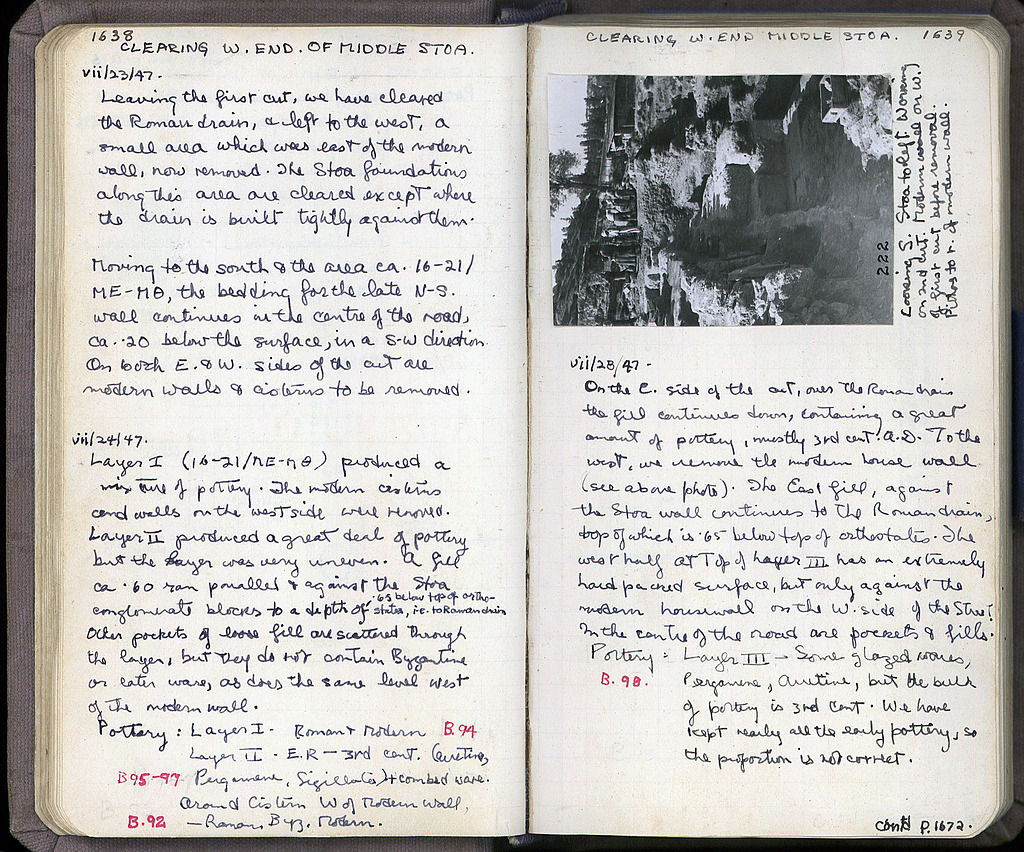 1638
CLEARING W. END. OF MIDDLE STOA.
vii/23/47.
Leaving the first cut, we have cleared
the Roman drain, & left to the west, a
small area which was east of the modern
wall, now removed. The Stoa foundations
along this area are cleared except where
the drain is built tightly against them.
Moving to the south & the area ca. 16-21/
ME-MΘ, the bedding for the late N-S.
wall continues in the centre of the road,
ca. .20 below the surface, in a S-W direction.
On both E. & W. sides of the cut are
modern walls & cisterns to be removed.
vii/24/47.
Layer I (16-21/ME-MΘ) produced a
mixture of pottery. The modern cisterns
and walls on the west side were removed.
Layer II produced a great deal of pottery
but the layer was very uneven. A fill
ca .60 ran parallel & against the Stoa
conglomerate blocks to a depth of .65 below top of ortho-
states, i.e. to Roman drain
Other pockets of loose fill are scattered through
the layer, but they do not contain Byzantine
or later ware, as does the same level west
of the modern wall.
Pottery: Layer I - Roman & Modern B.94
Layer II - E.R - 3rd cent. (Arretine,
B95-97 Pergamene, Sigillata) & combed ware.
Around Cistern W of Modern wall,
B.92 - Roman, Byz. Modern.
CLEARING W. END MIDDLE STOA. 1639
222
Looking S. Stoa to left. Working
on 2nd cut. Modern wall on W.
of first cut before removal.
Pithos to r. of modern wall.
vii/28/47 -
On the E. side of the cut, over the Roman drain
the fill continues down, containing a great
amount of pottery, mostly 3rd cent. A.D. To the
west, we remove the modern house wall
(see above photo). The East fill, against
the Stoa wall continues to the Roman drain,
top of which is .65 below top of orthostates. The
west half at Top of Layer III has an extremely
hard packed surface, but only against the
modern housewall on the W. side of the Street.
In the centre of the road are pockets & fills.
Pottery: Layer III - Some glazed wares,
B.98. Pergamene, Arretine, but the bulk
of pottery is 3rd cent. We have
kept nearly all the early pottery, so
the proportion is not correct.
contd p.1672.